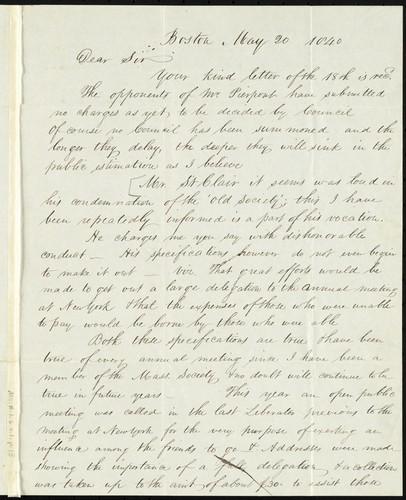 Boston May 20 1840
Dear Sir
Your kind letter of the 18th is recd.
The opponents of Mr Pierpont have submitted
no charges as yet, to be decided by Council
of course no Council has been summoned and the
longer they delay, the deeper they will sink in the
public estimation as I believe
[Mr. St. Clair it seems was loud in
his condemnation of the Old Society; this I have
been repeatedly informed is a part of his vocation.
He charges me you say with dishonorable
conduct — His specifications however do not even begin
to make it out — Viz. That great efforts would be
made to get out a large delegation to the annual meeting
at New York & that the expenses of those who were unable
to pay would be borne by those who were able
Both these specifications are true & have been
true of every annual meeting since I have been a
member of the Mass Society & no doubt will continue to be
true in future years — This year an open public
meeting was called in the last Liberator previous to the
meeting at New York for the very purpose of exerting an
influence among the friends to go & Addresses were made
showing the importance of a full delegation & a collection
was taken up to the amt of about $30- to assist those